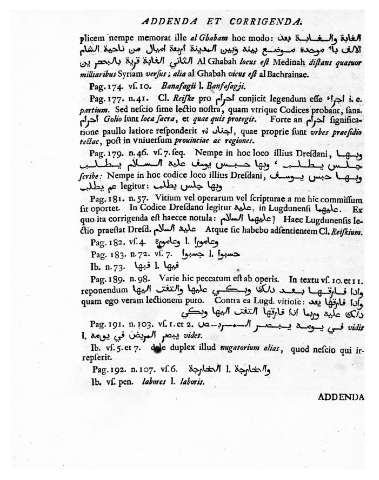 ADDENDA ET CORRIGENDA.
plicem nempe memorat ille al Ghabam hoc modo: الغابة والغـابـة بعد
الالف با موحدة موضع بينه وبين المدينة اربعة اميال من ناحية الشام
الغابة الثاني قرية بالبحرين Al Ghabah locus est Medinah distans quatuor
milliaribus Syriam versus; alia al Ghabah vicus est al Bachrainae.
Pag. 174. vs. 10. Banafagii l. Banfasagji.
Pag. 177. n. 41. Cl. Reiske pro احرام conjicit legendum esse اجزاء i. e.
partium. Sed nescio sime lectio nostra, quam vtrique Codices probant, sana.
احرام Golio sunt loca sacra, et quae quis protegit. Forte an احرام significa-
tione paullo latiore responderit اجناد, quae proprie sunt vrbes praesidio
tectae, post in vniuersum prouinciae ac regiones.
Pag. 179. n. 46. vs. 7. seq. Nempe in hoc loco illius Dresdani, وبـهـا
جلس يـطـلـب وبها حبس يوسف عليه السلام يـطـلـب
scribe: Nempe in hoc codice loco illius Dresdani, وبـهـا حبس يـوسـف
عم يطلب legitur: وبها جلس يطلب
Pag. 181. n. 57. Vitium vel operarum vel scripturae a me hic commissum
sit oportet. In Codice Dresdano legitur عليه, in Lugdunensi عليهما. Ex
quo ita corrigenda est haecce notula: عليهما السلام] Haec Lugdunensis le-
ctio praestat Dresd. عليه السلام Atque sic habebo adsentientem Cl. Reiskium.
Pag. 182. vs. 4. وعاموريا l. وعامورا
Pag. 183. n. 72. vs. 7. حبسوا l. جسوا
Ib. n. 73. قبها l. فيها
Pag. 189. n. 98. Varie hic peccatum est ab operis. In textu vs. 10. et 11.
reponendum واذا فـارقـهـا بـعـد ذلـك ويـبـكـي عليها والتفت اليها
quam ego veram lectionem puto. Contra ea Lugd. vitiose: واذا فارقها بعد
ذلك عليه وربما اذا فارقها التفت اليها ويبكي
Pag. 191. n. 103. vs. 1. et 2. في يومه يـبـصـر الـمـريـض vidit
l. يبصر المريض في يومه videt.
Ib. vs. 5. et 7. dele duplex illud nugatorium alias, quod nescio qui ir-
repserit.
Pag. 192. n. 107. vs. 6. والخارجة l. الخارجة
Ib. vs. pen. labores l. laboris.
ADDENDA